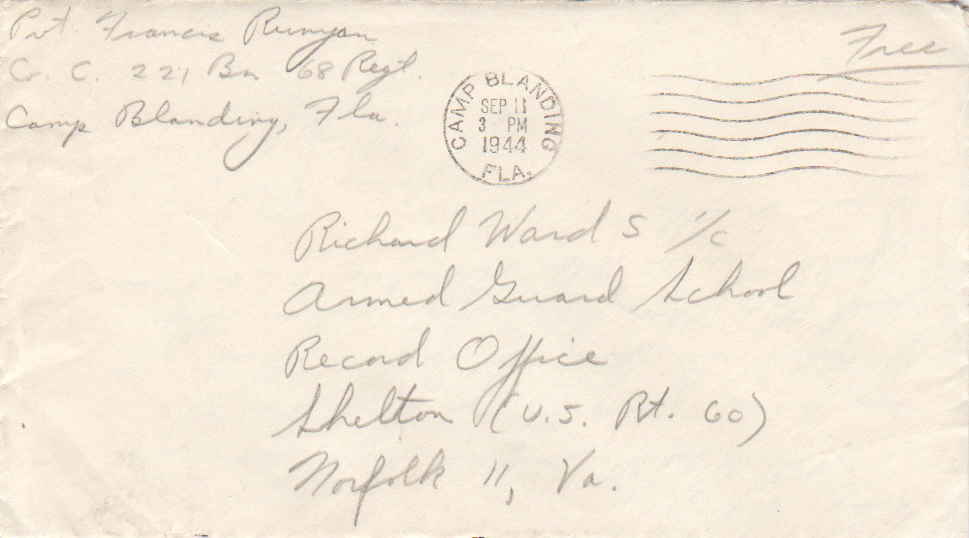 Pvt. Francis Runyan
Co. C. 221 Bn 68 Regt.
Camp Blanding, Fla.
Free
CAMP BLANDING
SEP 11
3 PM
1944
FLA.
Richard Ward S 1/c
Armed Guard School
Record Office
Shelton (U.S. Rt. 60)
Norfolk 11, Va.